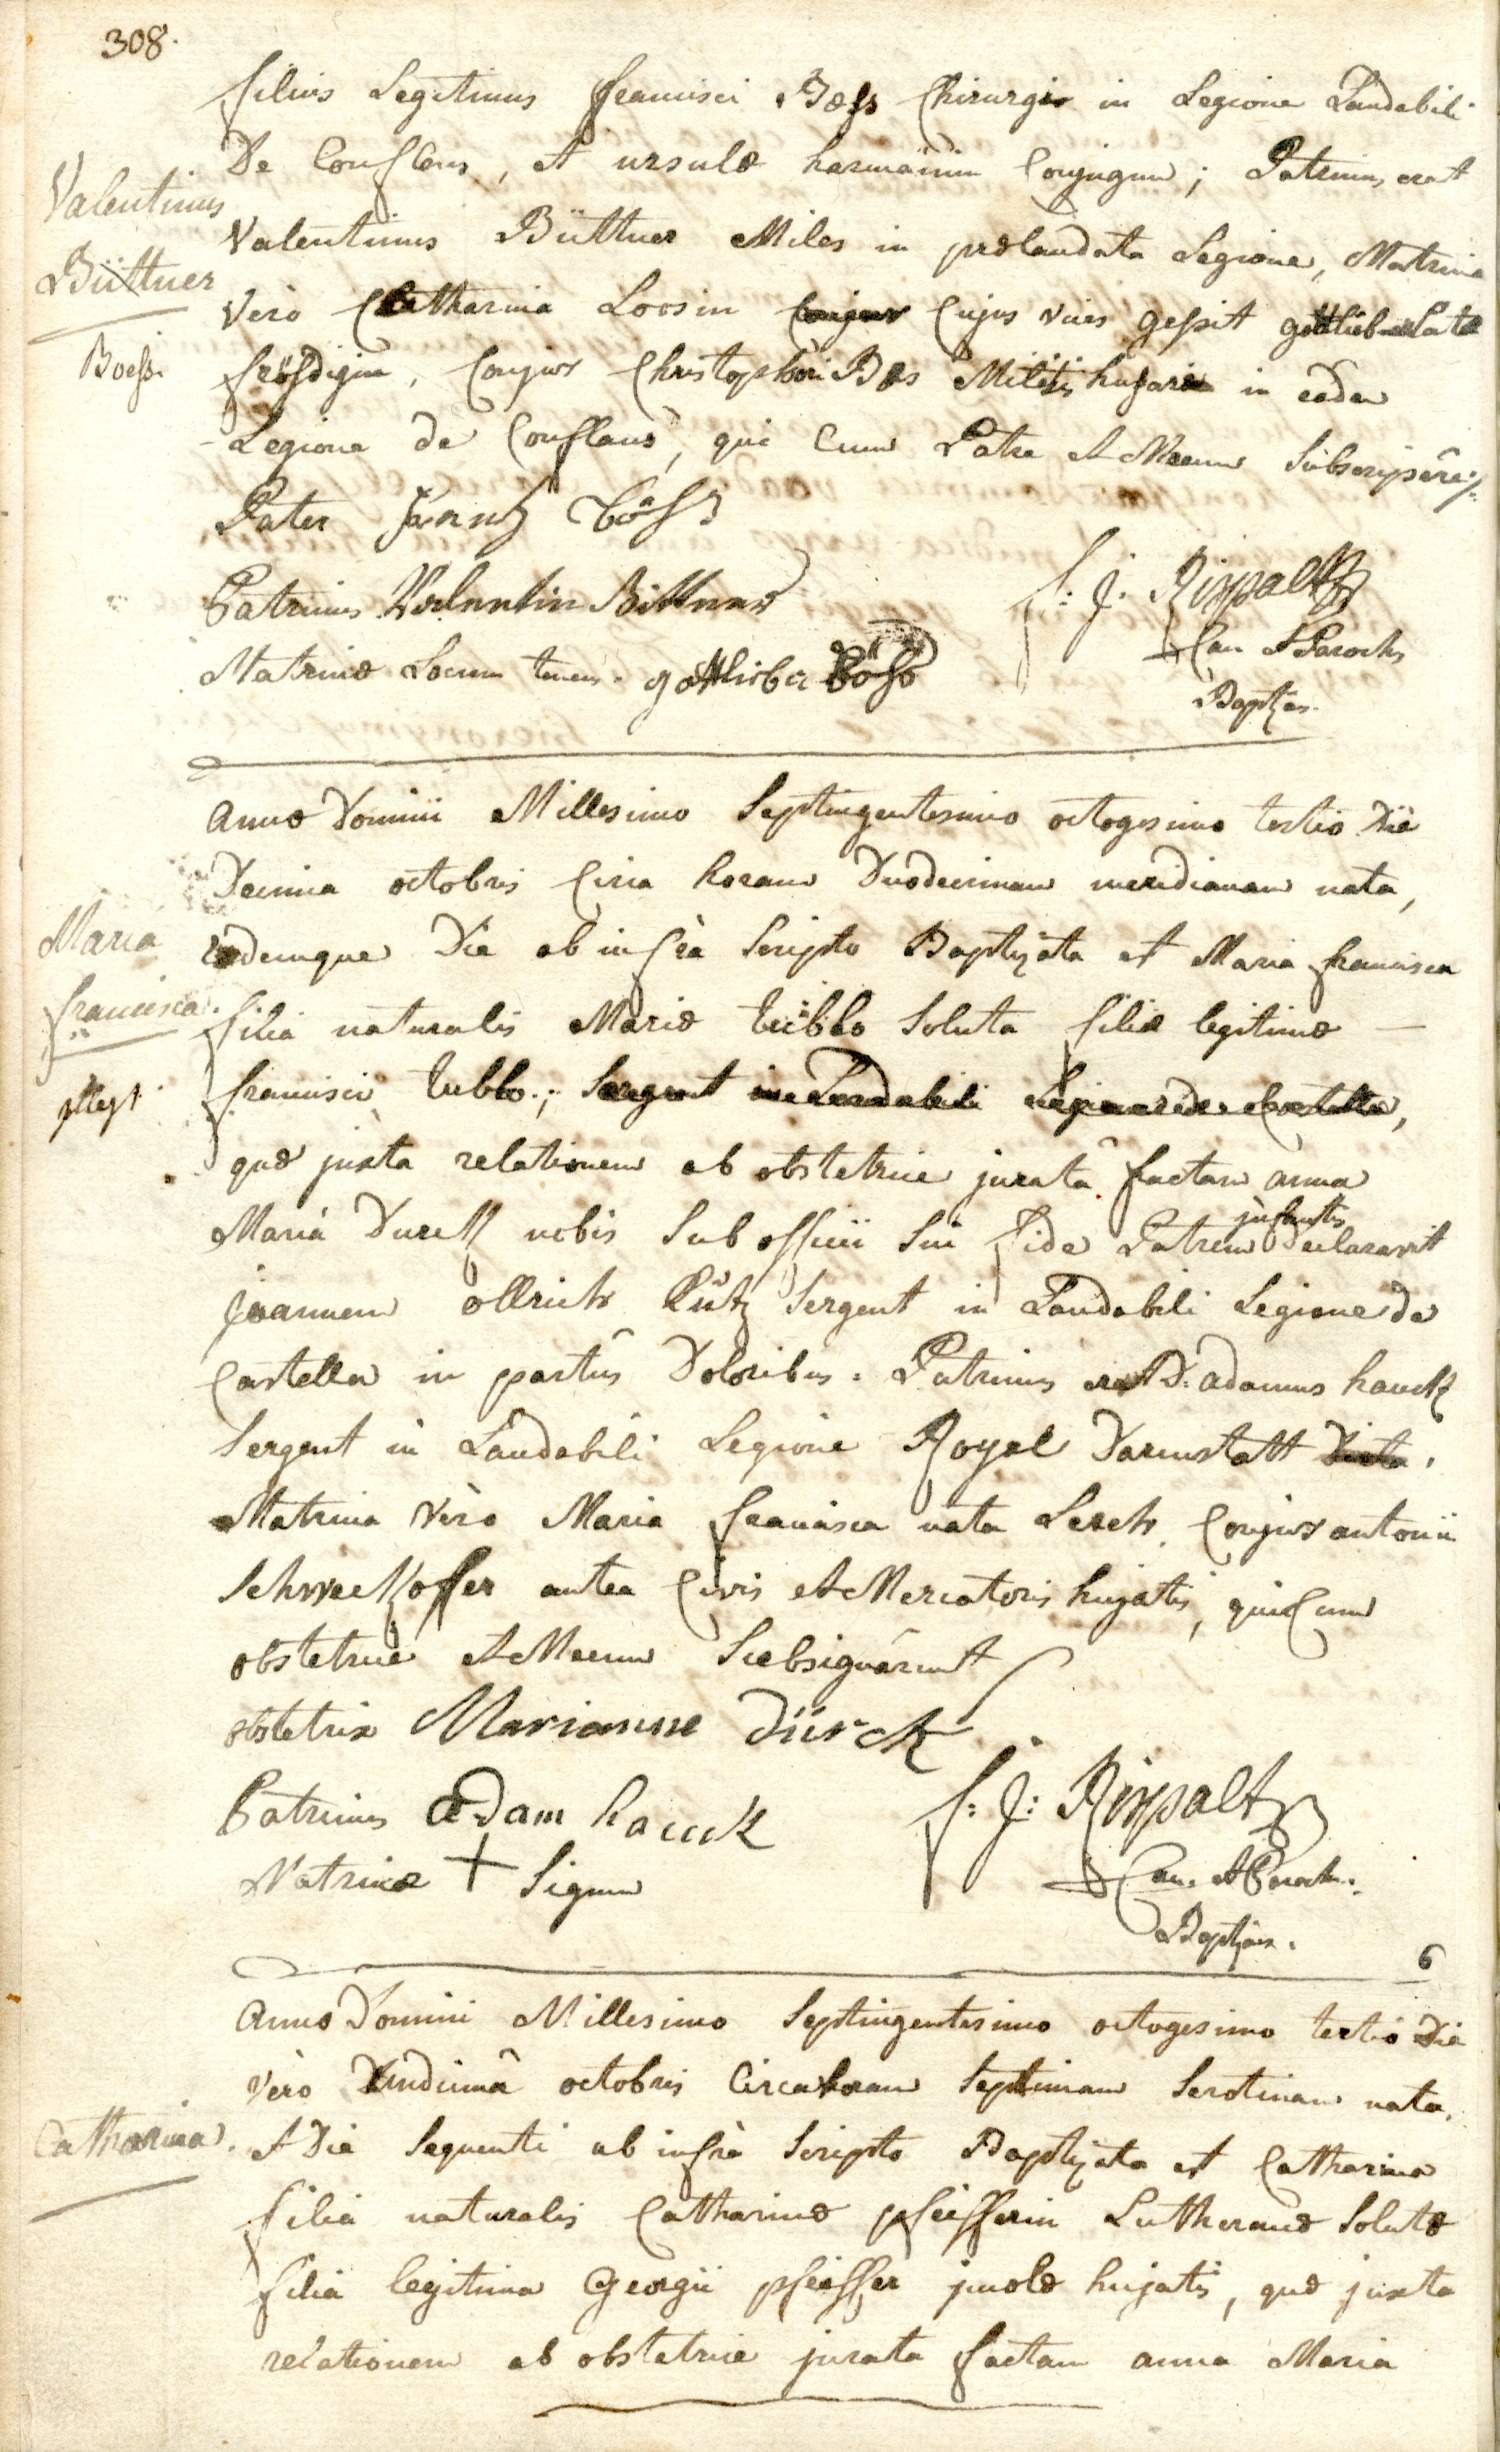 308.
filius Legitimus francisci Boess Chirurgi in Legione Laudabili
De Conflans, et ursulæ harmänin Conjugum; Patrinus erat
Valentinus
Büttner
Boess.
Valentinus Büttner Miles in prælaudata Legione, Matrina
Vero Catharina Loosin Cujus vices gessit
frösdigin, Conjux Christophori Boes Militis husari in eâdem
Legione de Conflans, qui Cum Patre et Mecum Subscripsêre
Pater Frantz Böss
Patrinus Valentin Bittner
Matrinæ Locum tenens. gottlieba Böss
f: J: Rispaltz
Can et Parochs
Baptizas.
Anno Domini Millesimo Septingentesimo octogesimo tertio Die
Decima octobris Circa horam Duodecimam meridianam nata,
Maria
francisca.
illegt.
eademque Die ab infrà Scripto Baptizata est Maria francisca
filia naturalis Mariæ tübbo Soluta filiæ legitimæ
francisci tubbo; Sergent in Laudabili Legione de Castella,
quæ juxta relationem ab obstetrice jurata factam anna
Maria Dureck nobis Sub officii Sui fide Patrem infantis Declaravit
joannem ollrich Lütz Sergent in Laudabili Legione de
Castella in partûs Doloribus. Patrinus erat D. adamus hauck
Sergent in Laudabili Legione Royal Darmstatt
Matrina Vèro Maria francisca nata Lerch Conjux antonii
Schweckhoffer antea Civis et Mercatoris hujatis, qui Cum
obstetrice et Mecum Subsignârunt
obstetrix Marianne Dürck
Patrinus adam hauck
Matrinæ + Signum
f: J: Rispaltz
Can. et Paroch.
Baptizans.
6
Anno Domini Millesimo Septingentesimo octogesimo tertio Die
Vèro Undecimâ octobris Circa horam Septimam Serotinam nata,
Catharina.
et Die Sequenti ab infrà Scripto Baptizata est Catharina
filia naturalis Catharinæ pfeifferin Lutheranæ Solutæ
filia legitima Georgii pfeiffer incolæ hujatis, quæ juxta
relationem ab obstetrice jurata factam anna Maria